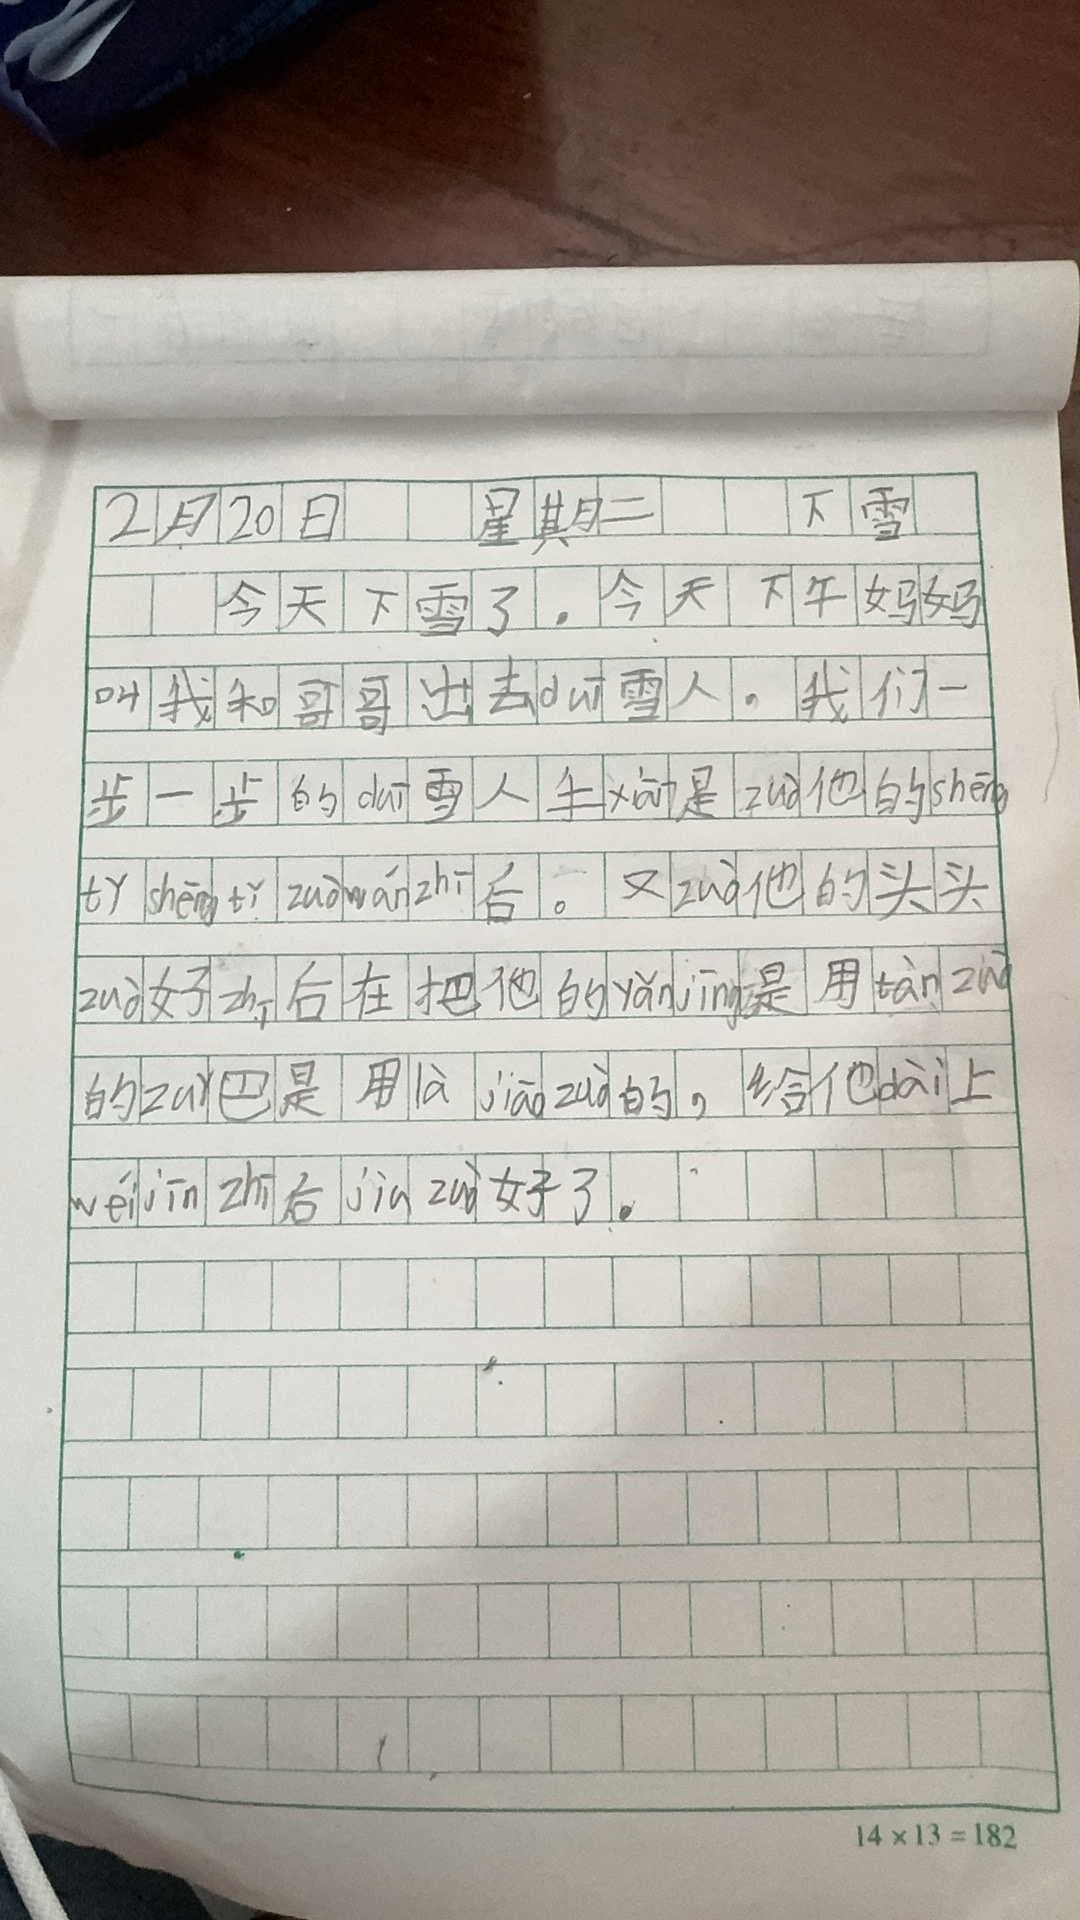 2月20日 星期二 下雪
今天下雪了.今天下午妈妈
叫我和哥哥出去duī雪人。我们一
步一步的duī雪人生xiàn是zuò他的shēng
tǐ shēng tǐ zuò wán zhī 后。又zuò他的头头
zuò好zhī后在把他的yǎn jīng是用tàn zuò
的zuǐ巴是用là jiāo zuò的,给他dài上
wéi jīn zhī 后 jiu zuò好了.
14×13=182